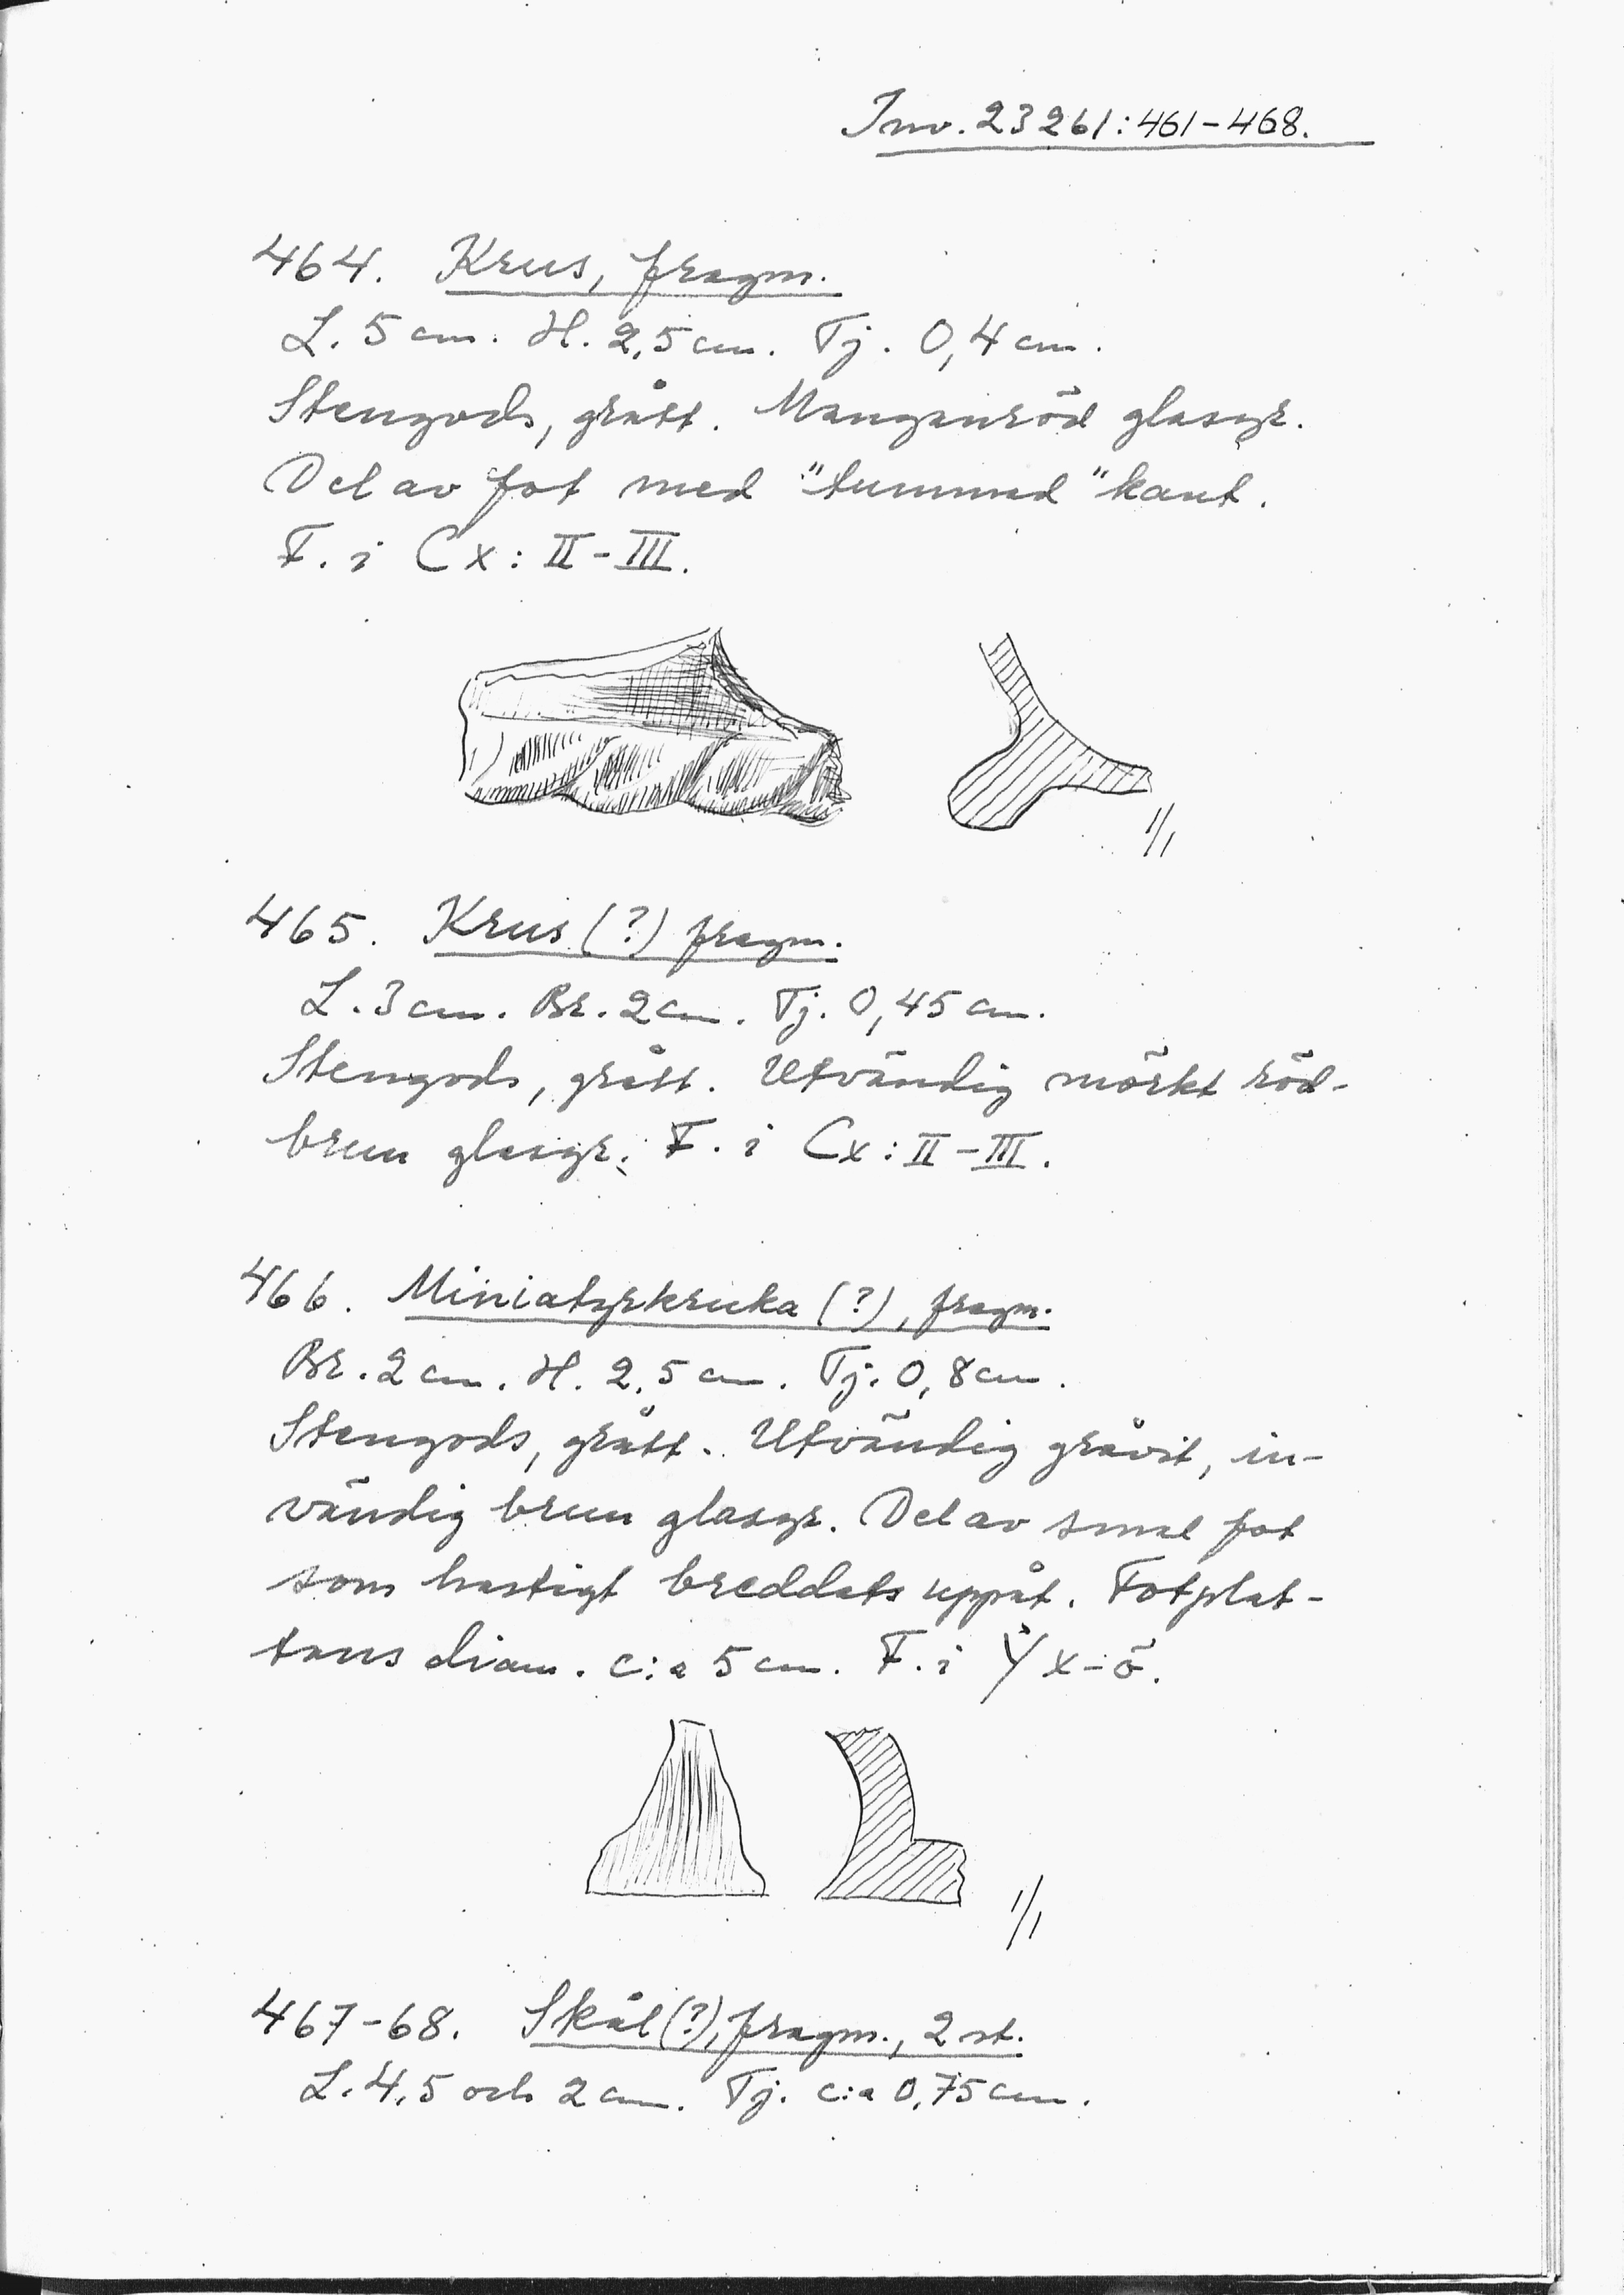 Inv. 23261:461-468.
464. Krus, fragm.
L. 5 cm. H. 2,5 cm. Tj. 0,4 cm.
Stengods, grått. Manganröd glasyr.
Del av fot med "tummad" kant.
F. i Cx: II-III.
1/1
465. Krus (?) fragm.
L. 3 cm. Br. 2 cm. Tj. 0,45 cm.
Stengods, grått. Utvändig mörkt röd-
brun glasyr. F. i Cx: II-III.
466. Miniatyrkruka (?), fragm.
Br. 2 cm. H. 2,5 cm. Tj. 0,8 cm.
Stengods, grått. Utvändig gråvit, in-
vändig brun glasyr. Del av smal fot
som hastigt breddats uppåt. Fotplat-
tans diam. c:a 5 cm. F. i Yx-ö.
1/1
467-68. Skål (?), fragm., 2 st.
L. 4,5 och 2 cm. Tj. c:a 0,75 cm.